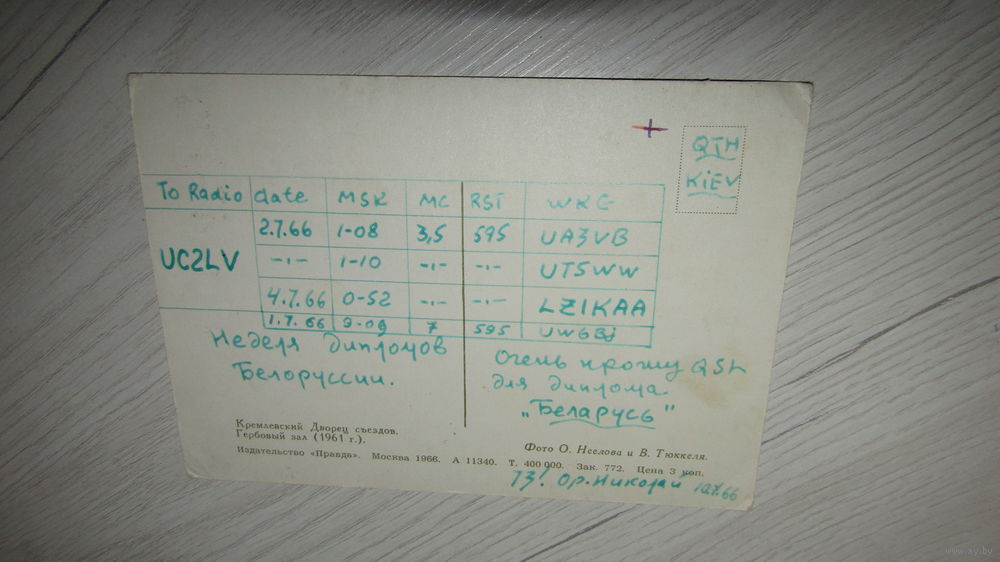 QTH
KiEV
To Radio date MSK MC RST WKG
UC2LV
2.7.66 1-08 3,5 595 UA3VB
-·- 1-10 -·- -·- UT5WW
4.7.66 0-52 -·- -·- LZ1KAA
1.7.66 9-09 7 595 UW6Bj
Неделя дипломов
Белоруссии.
Очень прошу QSL
для диплома
„Беларусь"
Кремлевский Дворец съездов.
Гербовый зал (1961 г.).
Фото О. Неслова и В. Тюккеля.
Издательство «Правда». Москва 1966. А 11340. Т. 400 000. Зак. 772. Цена 3 коп.
73! Ор. Николай 10.7.66
www.ay.by